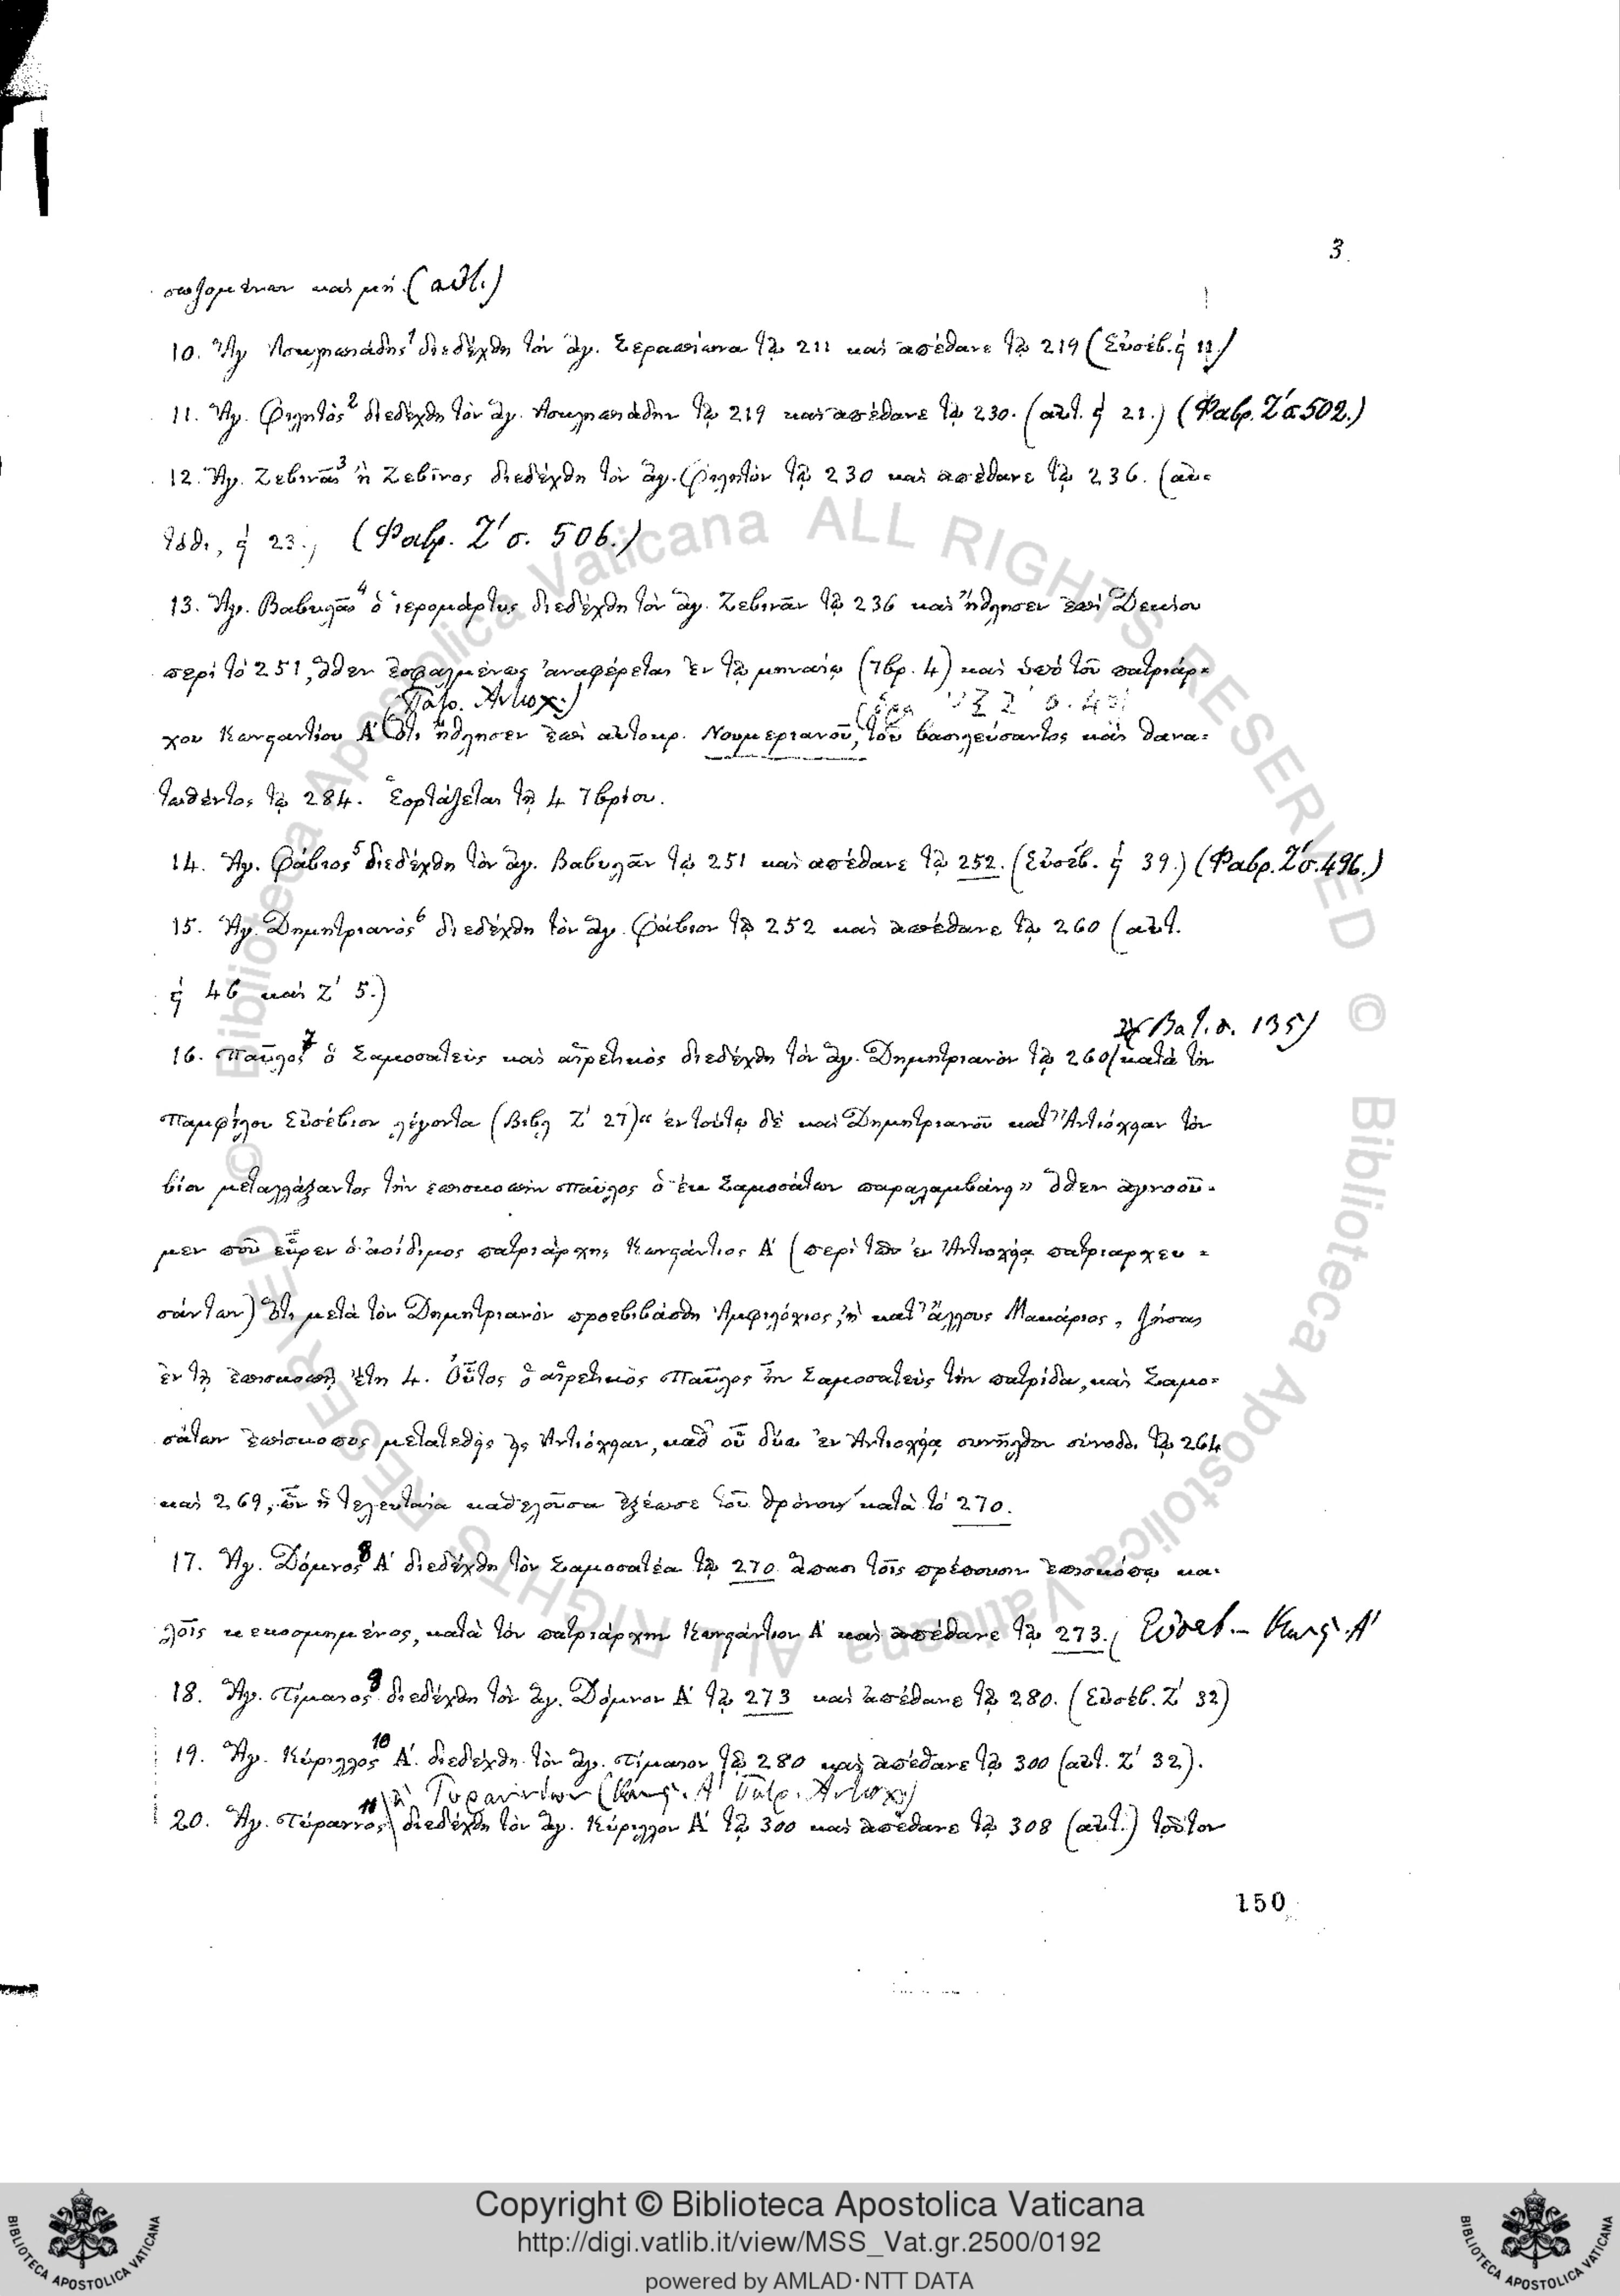 3
σωζομένων καὶ μή. (αὐτ.)
10. Ἅγ. Ἀσκληπιάδης¹ διεδέχθη τὸν ἅγ. Σεραπίωνα τῷ 211 καὶ ἀπέθανε τῷ 219 (Εὐσέβ. ϛ́ 11.)
11. Ἅγ. Φιλητὸς² διεδέχθη τὸν ἅγ. Ἀσκληπιάδην τῷ 219 καὶ ἀπέθανε τῷ 230. (αὐτ. ϛ́ 21.) (Φαβρ. Ζ΄ σ. 502.)
12. Ἅγ. Ζεβινᾶς³ ἢ Ζεβῖνος διεδέχθη τὸν ἅγ. Φιλητὸν τῷ 230 καὶ ἀπέθανε τῷ 236. (αὐ-
τόθι, ϛ́ 23., (Φαβρ. Ζ΄ σ. 506.)
13. Ἅγ. Βαβυλᾶς⁴ ὁ ἱερομάρτυς διεδέχθη τὸν ἅγ. Ζεβινᾶν τῷ 236 καὶ ἤθλησεν ἐπὶ Δεκίου
περὶ τὸ 251, ὅθεν ἐσφαλμένως ἀναφέρεται ἐν τῷ μηναίῳ (7βρ. 4) καὶ ὑπὸ τοῦ πατριάρ-
(Πατρ. Ἀντιοχ.)
χου Κωνσταντίου Α΄ ὅτι ἤθλησεν ἐπὶ αὐτοκρ. Νουμεριανοῦ, τοῦ βασιλεύσαντος καὶ θανα-
τωθέντος τῷ 284. Ἑορτάζεται τῇ 4 7βρίου.
14. Ἅγ. Φάβιος⁵ διεδέχθη τὸν ἅγ. Βαβυλᾶν τῷ 251 καὶ ἀπέθανε τῷ 252. (Εὐσέβ. ϛ́ 39.) (Φαβρ. Ζ΄ σ. 496.)
15. Ἅγ. Δημητριανὸς⁶ διεδέχθη τὸν ἅγ. Φάβιον τῷ 252 καὶ ἀπέθανε τῷ 260 (αὐτ.
ϛ́ 46 καὶ Ζ΄ 5.)
Βατ. σ. 135)
16. Παῦλος⁷ ὁ Σαμοσατεὺς καὶ αἱρετικὸς διεδέχθη τὸν ἅγ. Δημητριανὸν τῷ 260 (κατὰ τὸν
Παμφίλου Εὐσέβιον λέγοντα (Βιβλ Ζ΄ 27) « ἐν τούτῳ δὲ καὶ Δημητριανοῦ κατ' Ἀντιόχειαν τὸν
βίον μεταλλάξαντος τὴν ἐπισκοπὴν Παῦλος ὁ ἐκ Σαμοσάτων παραλαμβάνει » ὅθεν ἀγνοοῦ-
μεν ποῦ εὗρεν ὁ ἀοίδιμος πατριάρχης Κωνστάντιος Α΄ (περὶ τῶν ἐν Ἀντιοχείᾳ πατριαρχευ-
σάντων) ὅτι μετὰ τὸν Δημητριανὸν προεβιβάσθη Ἀμφιλόχιος, ἢ κατ' ἄλλους Μακάριος, ζήσας
ἐν τῇ ἐπισκοπῇ ἔτη 4. Οὗτος ὁ αἱρετικὸς Παῦλος ἦν Σαμοσατεὺς τὴν πατρίδα, καὶ Σαμο-
σάτων ἐπίσκοπος μετατεθεὶς εἰς Ἀντιόχειαν, καθ' οὗ δύω ἐν Ἀντιοχείᾳ συνῆλθον σύνοδοι τῷ 264
καὶ 269, ὧν ἡ τελευταία καθελοῦσα ἐξέωσε τοῦ θρόνου κατὰ τὸ 270.
17. Ἅγ. Δόμνος⁸ Α΄ διεδέχθη τὸν Σαμοσατέα τῷ 270 ἅπασι τοῖς πρέπουσιν ἐπισκόπῳ κα-
λοῖς κεκοσμημένος, κατὰ τὸν πατριάρχην Κωνστάντιον Α΄ καὶ ἀπέθανε τῷ 273. (Εὐσεβ. – Κωνστ. Α΄
18. Ἅγ. Τίμαιος⁹ διεδέχθη τὸν ἅγ. Δόμνον Α΄ τῷ 273 καὶ ἀπέθανε τῷ 280. (Εὐσέβ. Ζ΄ 32)
19. Ἅγ. Κύριλλος¹⁰ Α΄. διεδέχθη τὸν ἅγ. Τίμαιον τῷ 280 καὶ ἀπέθανε τῷ 300 (αὐτ. Ζ΄ 32).
ἢ Τυραννίων (Κωνστ. Α΄ Πατρ. Ἀντιοχ.)
20. Ἅγ. Τύραννος¹¹ διεδέχθη τὸν ἅγ. Κύριλλον Α΄ τῷ 300 καὶ ἀπέθανε τῷ 308 (αὐτ.) τοῦτον
150
© Biblioteca Apostolica Vaticana ALL RIGHTS RESERVED © Biblioteca Apostolica Vaticana ALL RIGHTS RESERVED
BIBLIOTECA APOSTOLICA VATICANA
Copyright © Biblioteca Apostolica Vaticana
http://digi.vatlib.it/view/MSS_Vat.gr.2500/0192
powered by AMLAD·NTT DATA
BIBLIOTECA APOSTOLICA VATICANA